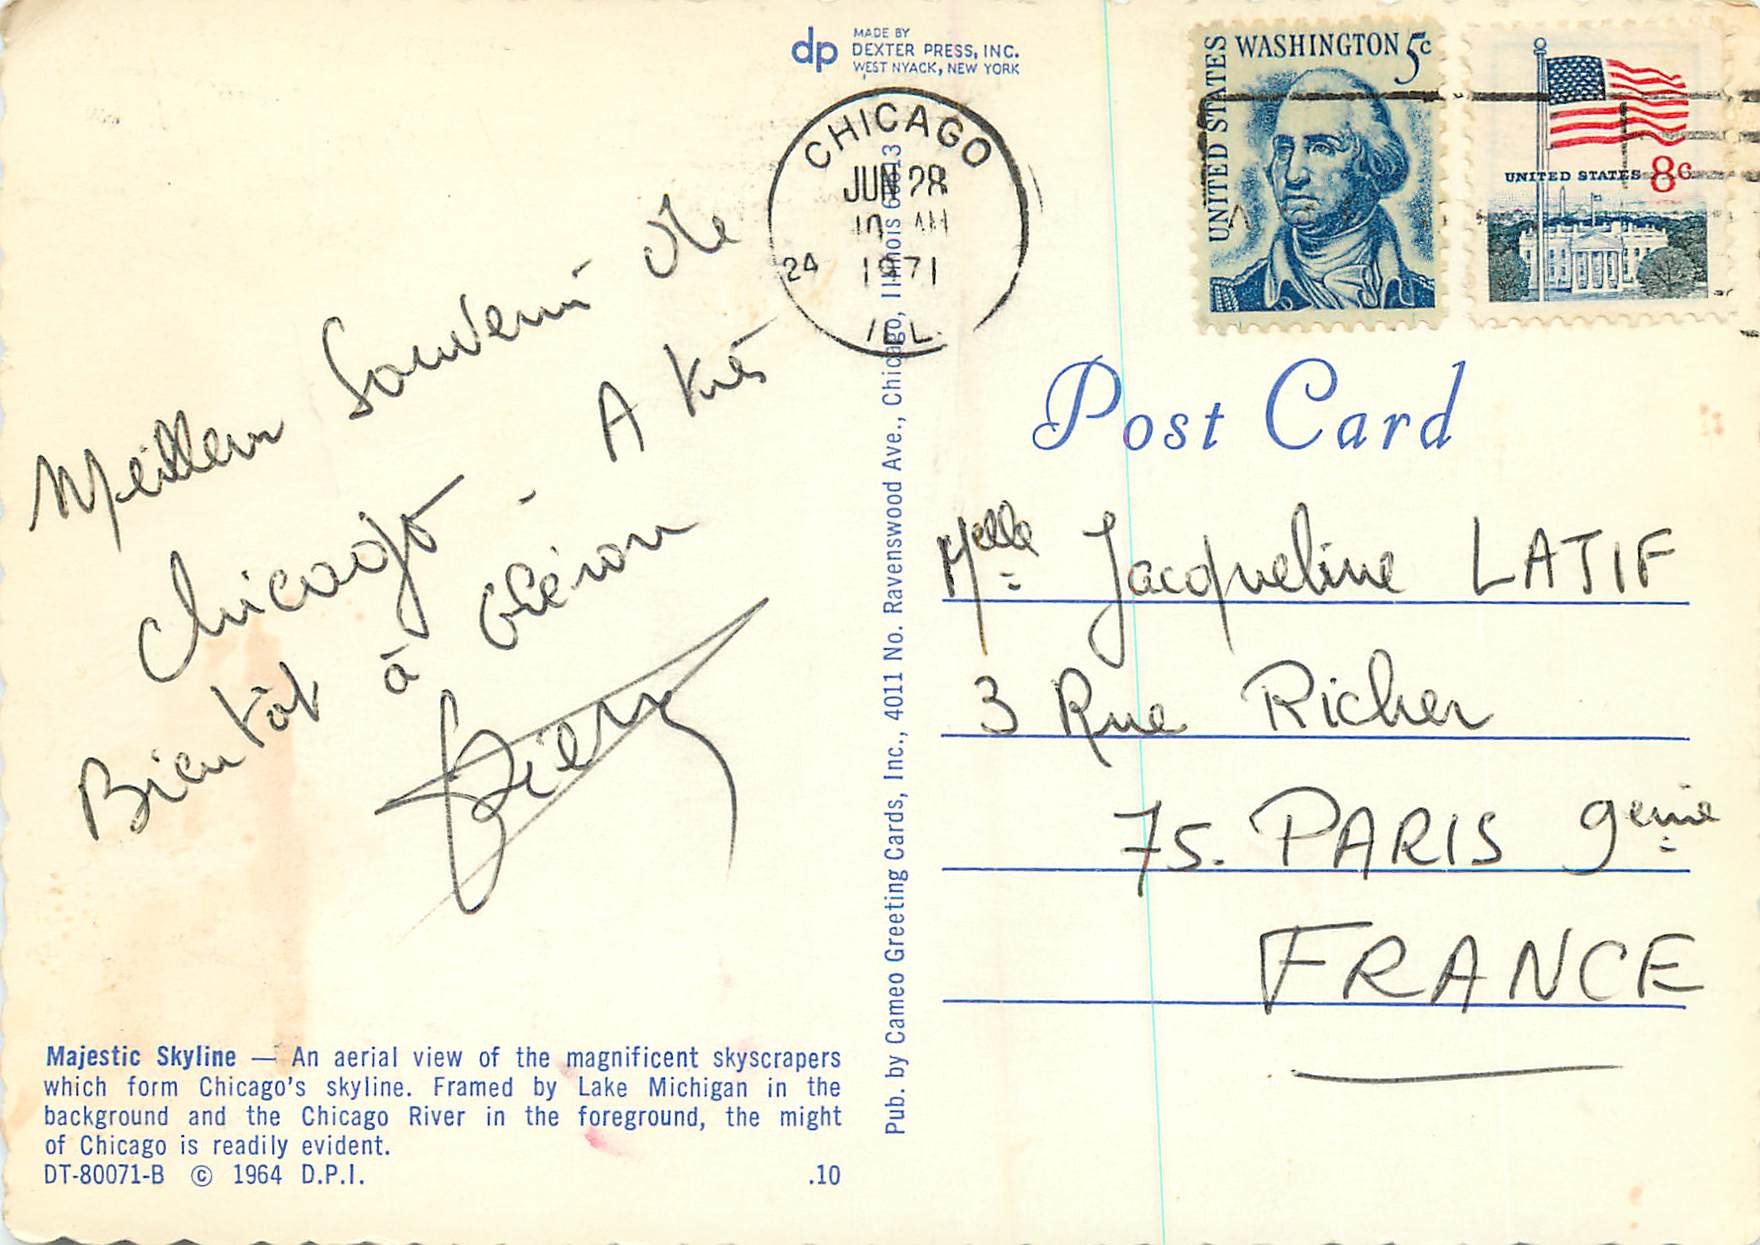 dp
MADE BY
DEXTER PRESS, INC.
WEST NYACK, NEW YORK
CHICAGO
JUN 28
10 AM
24 1971
ILL.
UNITED STATES
WASHINGTON 5c
UNITED STATES 8c
Meilleur Souvenir de
Chicago - A très
Bientôt à Oléron
Pierre
Post Card
Melle Jacqueline LATIF
3 Rue Richer
75. PARIS 9eme
FRANCE
Pub. by Cameo Greeting Cards, Inc., 4011 No. Ravenswood Ave., Chicago, Illinois 60613
Majestic Skyline — An aerial view of the magnificent skyscrapers
which form Chicago's skyline. Framed by Lake Michigan in the
background and the Chicago River in the foreground, the might
of Chicago is readily evident.
DT-80071-B © 1964 D.P.I. .10